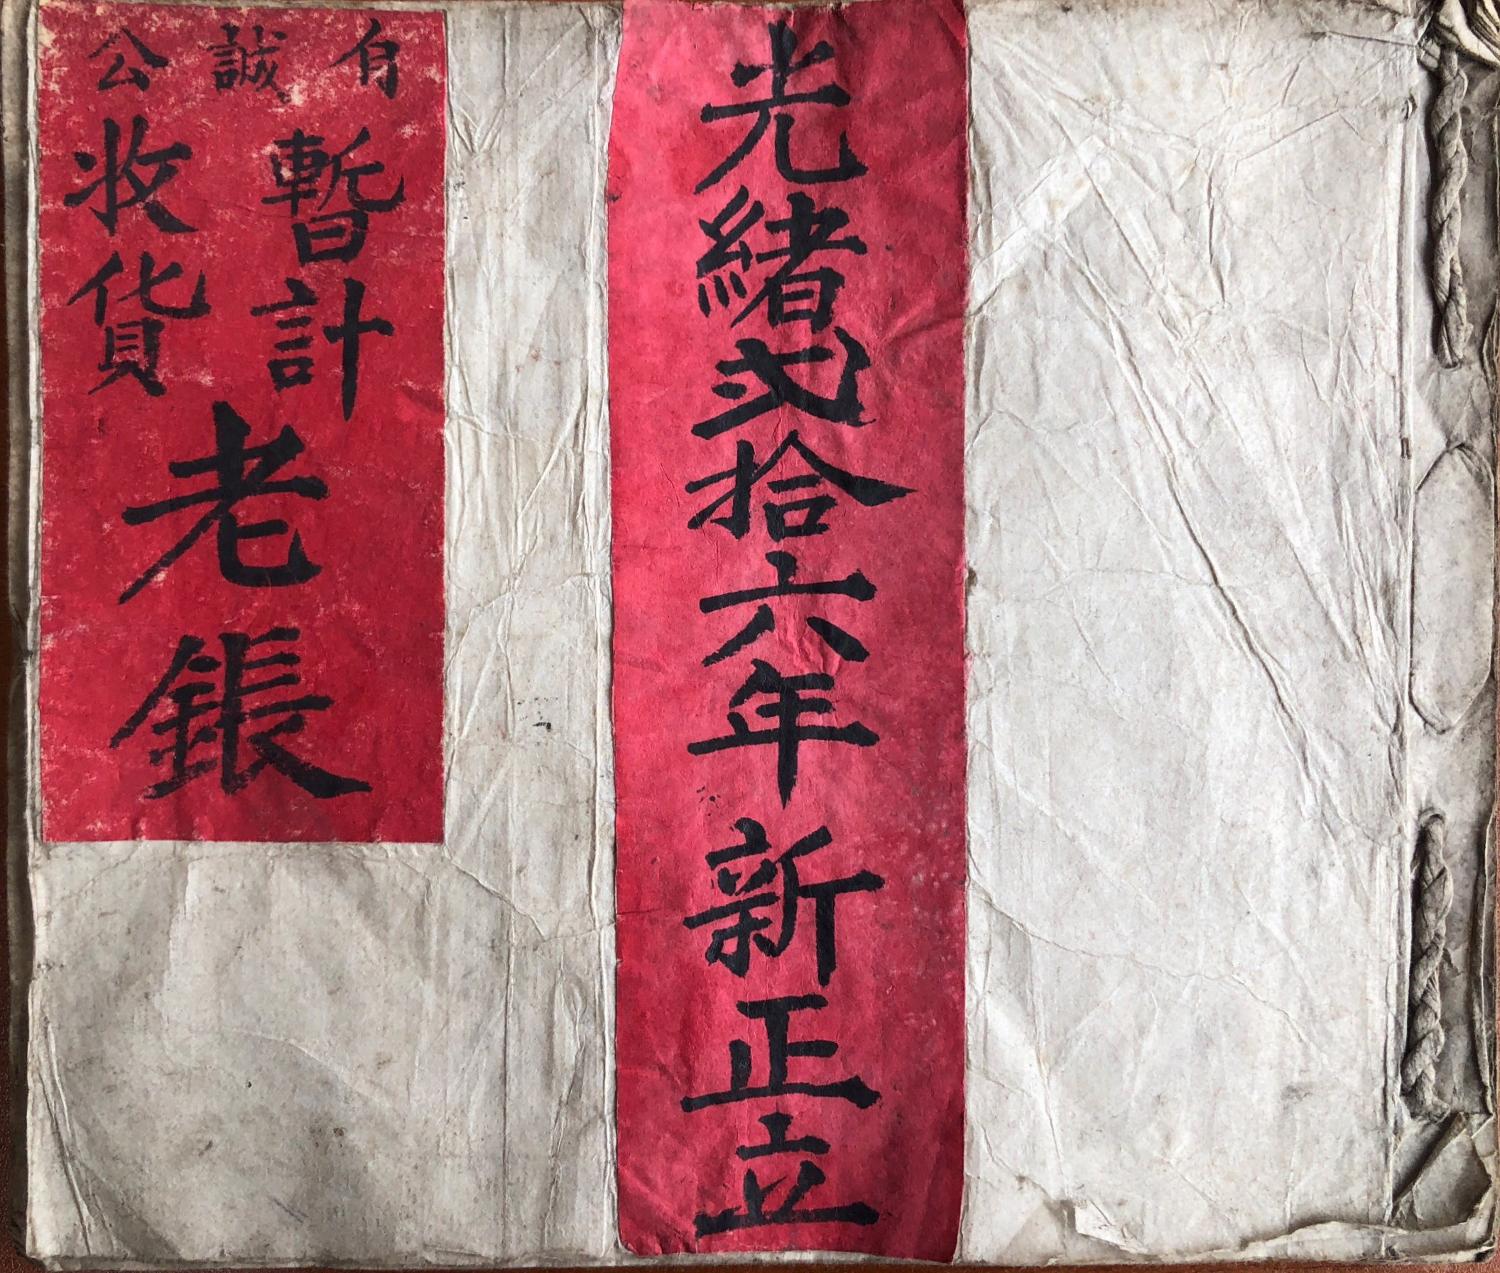 光緒弍拾六年新正立
自誠公
暫計
收貨
老鋹